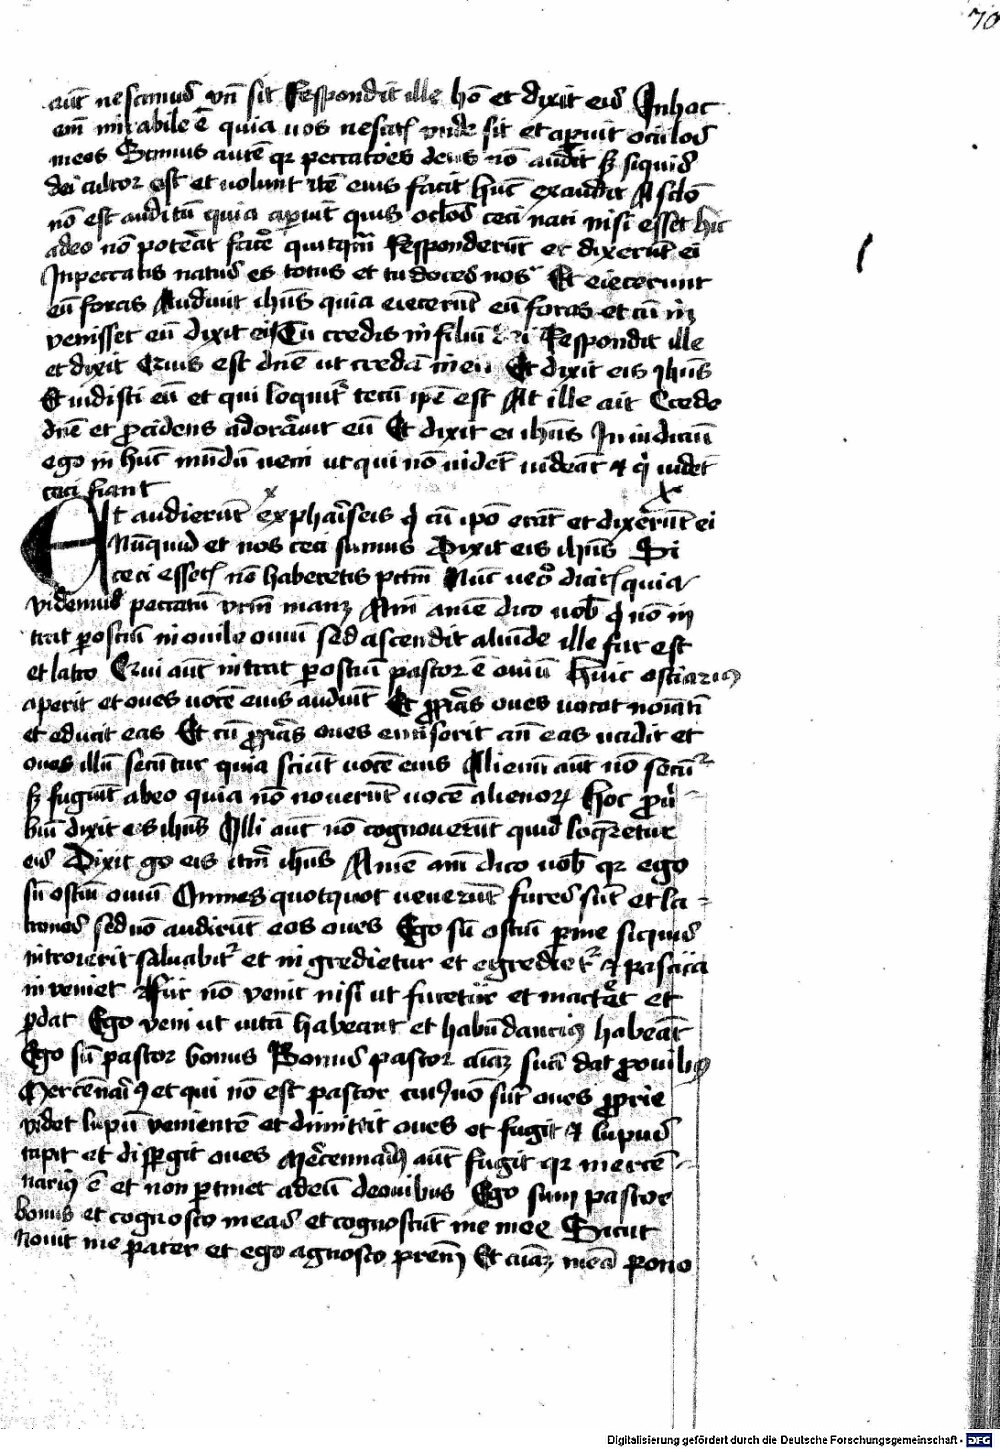 70
aūt nescimus vn̄ sit Respondit ille hō et dixit eis In hac
em̄ mirabile ē quia uos nescitis vnde sit et aperuit oculos
meos Scimus autē qr peccatores deus nō audit sꝫ siquis
dei cultor est et uolunt̄tē eius facit hūc exaudit A sclo
nō est auditū quia aperuit quis oclōs ceci nati nisi esset hic
adeo nō poterāt facē quitqm̄ Responderūt et dixerūt ei
In peccatis natus es totus et tu doces nos Et eiecerunt
eū foras Audiuit ihūs quia eiecerūt eū foras et cū in
venisset eū dixit ei Tu credis in filiū dei Respondit ille
et dixit Quis est dn̄e ut credā in eū Et dixit eis ihūs
Et uidisti eū et qui loquitr̄ tecū ip̄e est At ille ait Credo
dn̄e et ꝓcidens adorauit eū Et dixit ei ihūs In iudiciū
ego in hūc mūdū veni ut qui nō uidēt uideāt et q̄ uidēt
ceci fiant
Et audierūt ex phariseis q̄ cū ip̄o erāt et dixerūt ei
Nūquid et nos ceci sumus Dixit eis ihūs Si
ceci essetis nō haberetis pctm̄ Nūc uero dicitis quia
videmus peccatū vrm̄ manꝫ Am̄ amē dico uob̄ q̄ nō in
trat ꝑ ostiū in ouile ouiū sed ascendit aliūde ille fur est
et latro Qui aūt intrat ꝑ ostiū pastor ē ouiū Huic ostiariꝰ
aperit et oues uocē eius audiūt Et ꝓprias oues uocat noīatī
et educit eas Et cū ꝓprias oues emiserit an̄ eas uadit et
oues illū secūtur quia sciūt uocē eius Alienū aūt nō secūr̄
sꝫ fugiūt ab eo quia nō nouerūt uocē alienoꝝ Hoc ꝓū
biū dixit eis ihūs Illi aūt nō cognouerūt quid loqretur
eis Dixit go eis itm̄ ihūs Amē am̄ dico uob̄ qr ego
sū ostiū ouiū Omnes quotquot venerūt fures sūt et la
trones sed nō audirūt eos oues Ego sū ostiū ꝑ me siquis
introierit saluabitr̄ et ingredietur et egredietr̄ et pascua
inveniet Fur nō venit nisi ut furetur et mactet et
ꝑdat Ego veni ut uitā habeant et habūdanciꝰ habeāt
Ego sū pastor bonus Bonus pastor aīaꝫ suā dat ꝓ ouibꝰ
Mercēnariꝰ et qui nō est pastor cuiꝰ nō sūt oues ꝓprie
videt lupū venientē et dimittit oues et fugit et lupus
rapit et dispgit oues Mercennariꝰ aūt fugit qr mercē
nariꝰ ē et non ꝑtinet ad eū de ouibus Ego sum pastor
bonus et cognosco meas et cognoscūt me mee Sicut
nouit me pater et ego agnosco prem̄ Et aīaꝫ meā pono
Digitalisierung gefördert durch die Deutsche Forschungsgemeinschaft - DFG